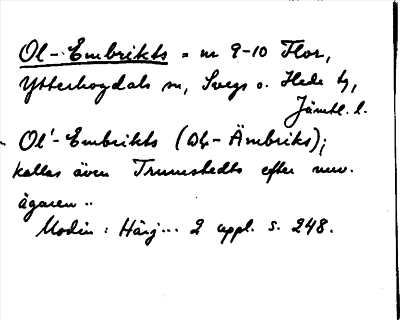 Ol-Embrikts = nr 9-10 Flor,
Ytterhogdals sn, Svegs o. Hede tg,
Jämtl. l.
Ol'-Embrikts (Ol-Ämbriks);
kallas även Trumstedts efter nuv.
ägaren ..
Modin: Härj... 2 uppl. s. 248.